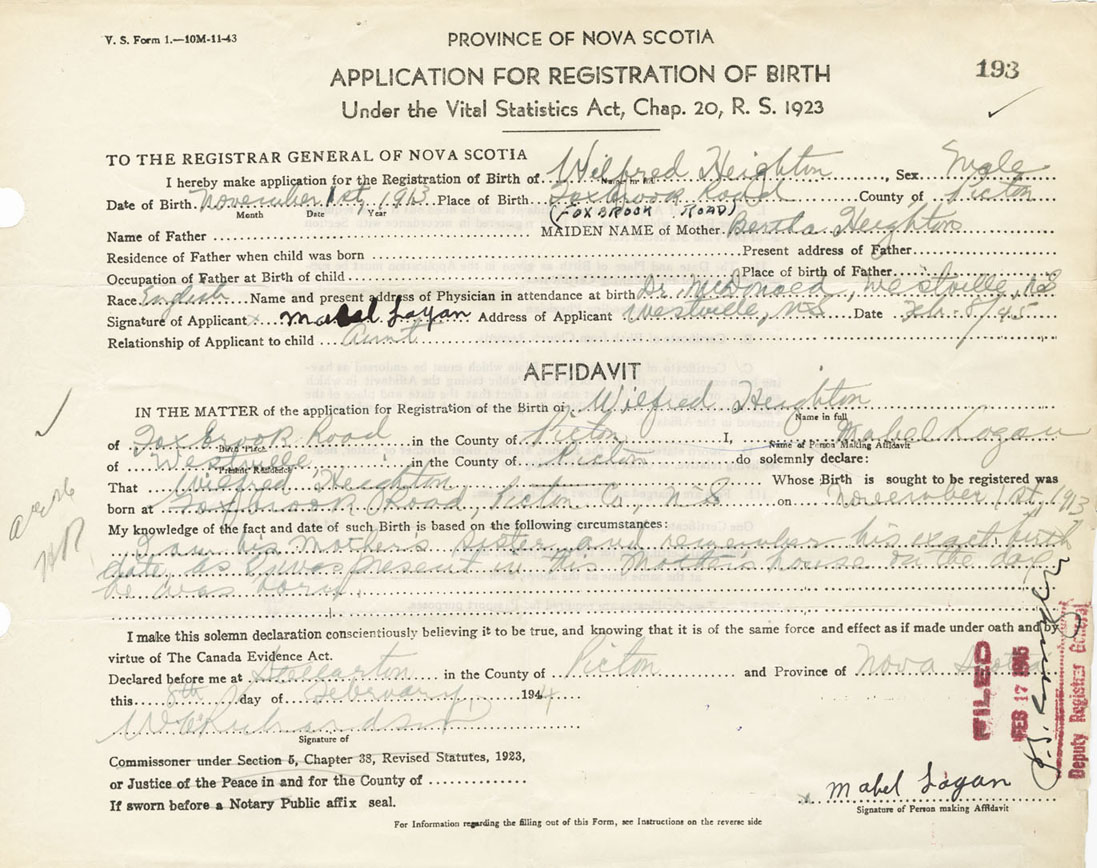 V. S. Form 1.—10M-11-43
PROVINCE OF NOVA SCOTIA
193
APPLICATION FOR REGISTRATION OF BIRTH
Under the Vital Statistics Act, Chap. 20, R. S. 1923
TO THE REGISTRAR GENERAL OF NOVA SCOTIA
I hereby make application for the Registration of Birth of Wilfred Heighton, Sex Male
Name in full
Date of Birth November 1st, 1913 Place of Birth Foxbrook Road County of Picton
Month Date Year (FOXBROOK ROAD)
Name of Father MAIDEN NAME of Mother Bertha Heighton
Residence of Father when child was born Present address of Father
Occupation of Father at Birth of child Place of birth of Father
Race English Name and present address of Physician in attendance at birth Dr. McDonald, Westville, NS
Signature of Applicant x Mabel Logan Address of Applicant Westville, NS Date Feb. 8/45
Relationship of Applicant to child Aunt
AFFIDAVIT
IN THE MATTER of the application for Registration of the Birth of Wilfred Heighton
Name in full
of Foxbrook Road in the County of Picton I, Mabel Logan
Birth Place Name of Person Making Affidavit
of Westville in the County of Picton do solemnly declare:
Present Residence
That Wilfred Heighton Whose Birth is sought to be registered was
born at Foxbrook Road, Picton Co., N S on November 1st, 1913
My knowledge of the fact and date of such Birth is based on the following circumstances:
I am his Mother's sister and remember his exact birth
date, as I was present in his Mother's house on the day
he was born.
I make this solemn declaration conscientiously believing it to be true, and knowing that it is of the same force and effect as if made under oath and by
virtue of The Canada Evidence Act.
Declared before me at Stellarton in the County of Picton and Province of Nova Scotia
this 8th day of February, 194
Signature of
Commissoner under Section 5, Chapter 38, Revised Statutes, 1923,
or Justice of the Peace in and for the County of
If sworn before a Notary Public affix seal.
FILED
FEB 17 1945
Deputy Registrar General
x Mabel Logan
Signature of Person making Affidavit
For Information regarding the filling out of this Form, see Instructions on the reverse side